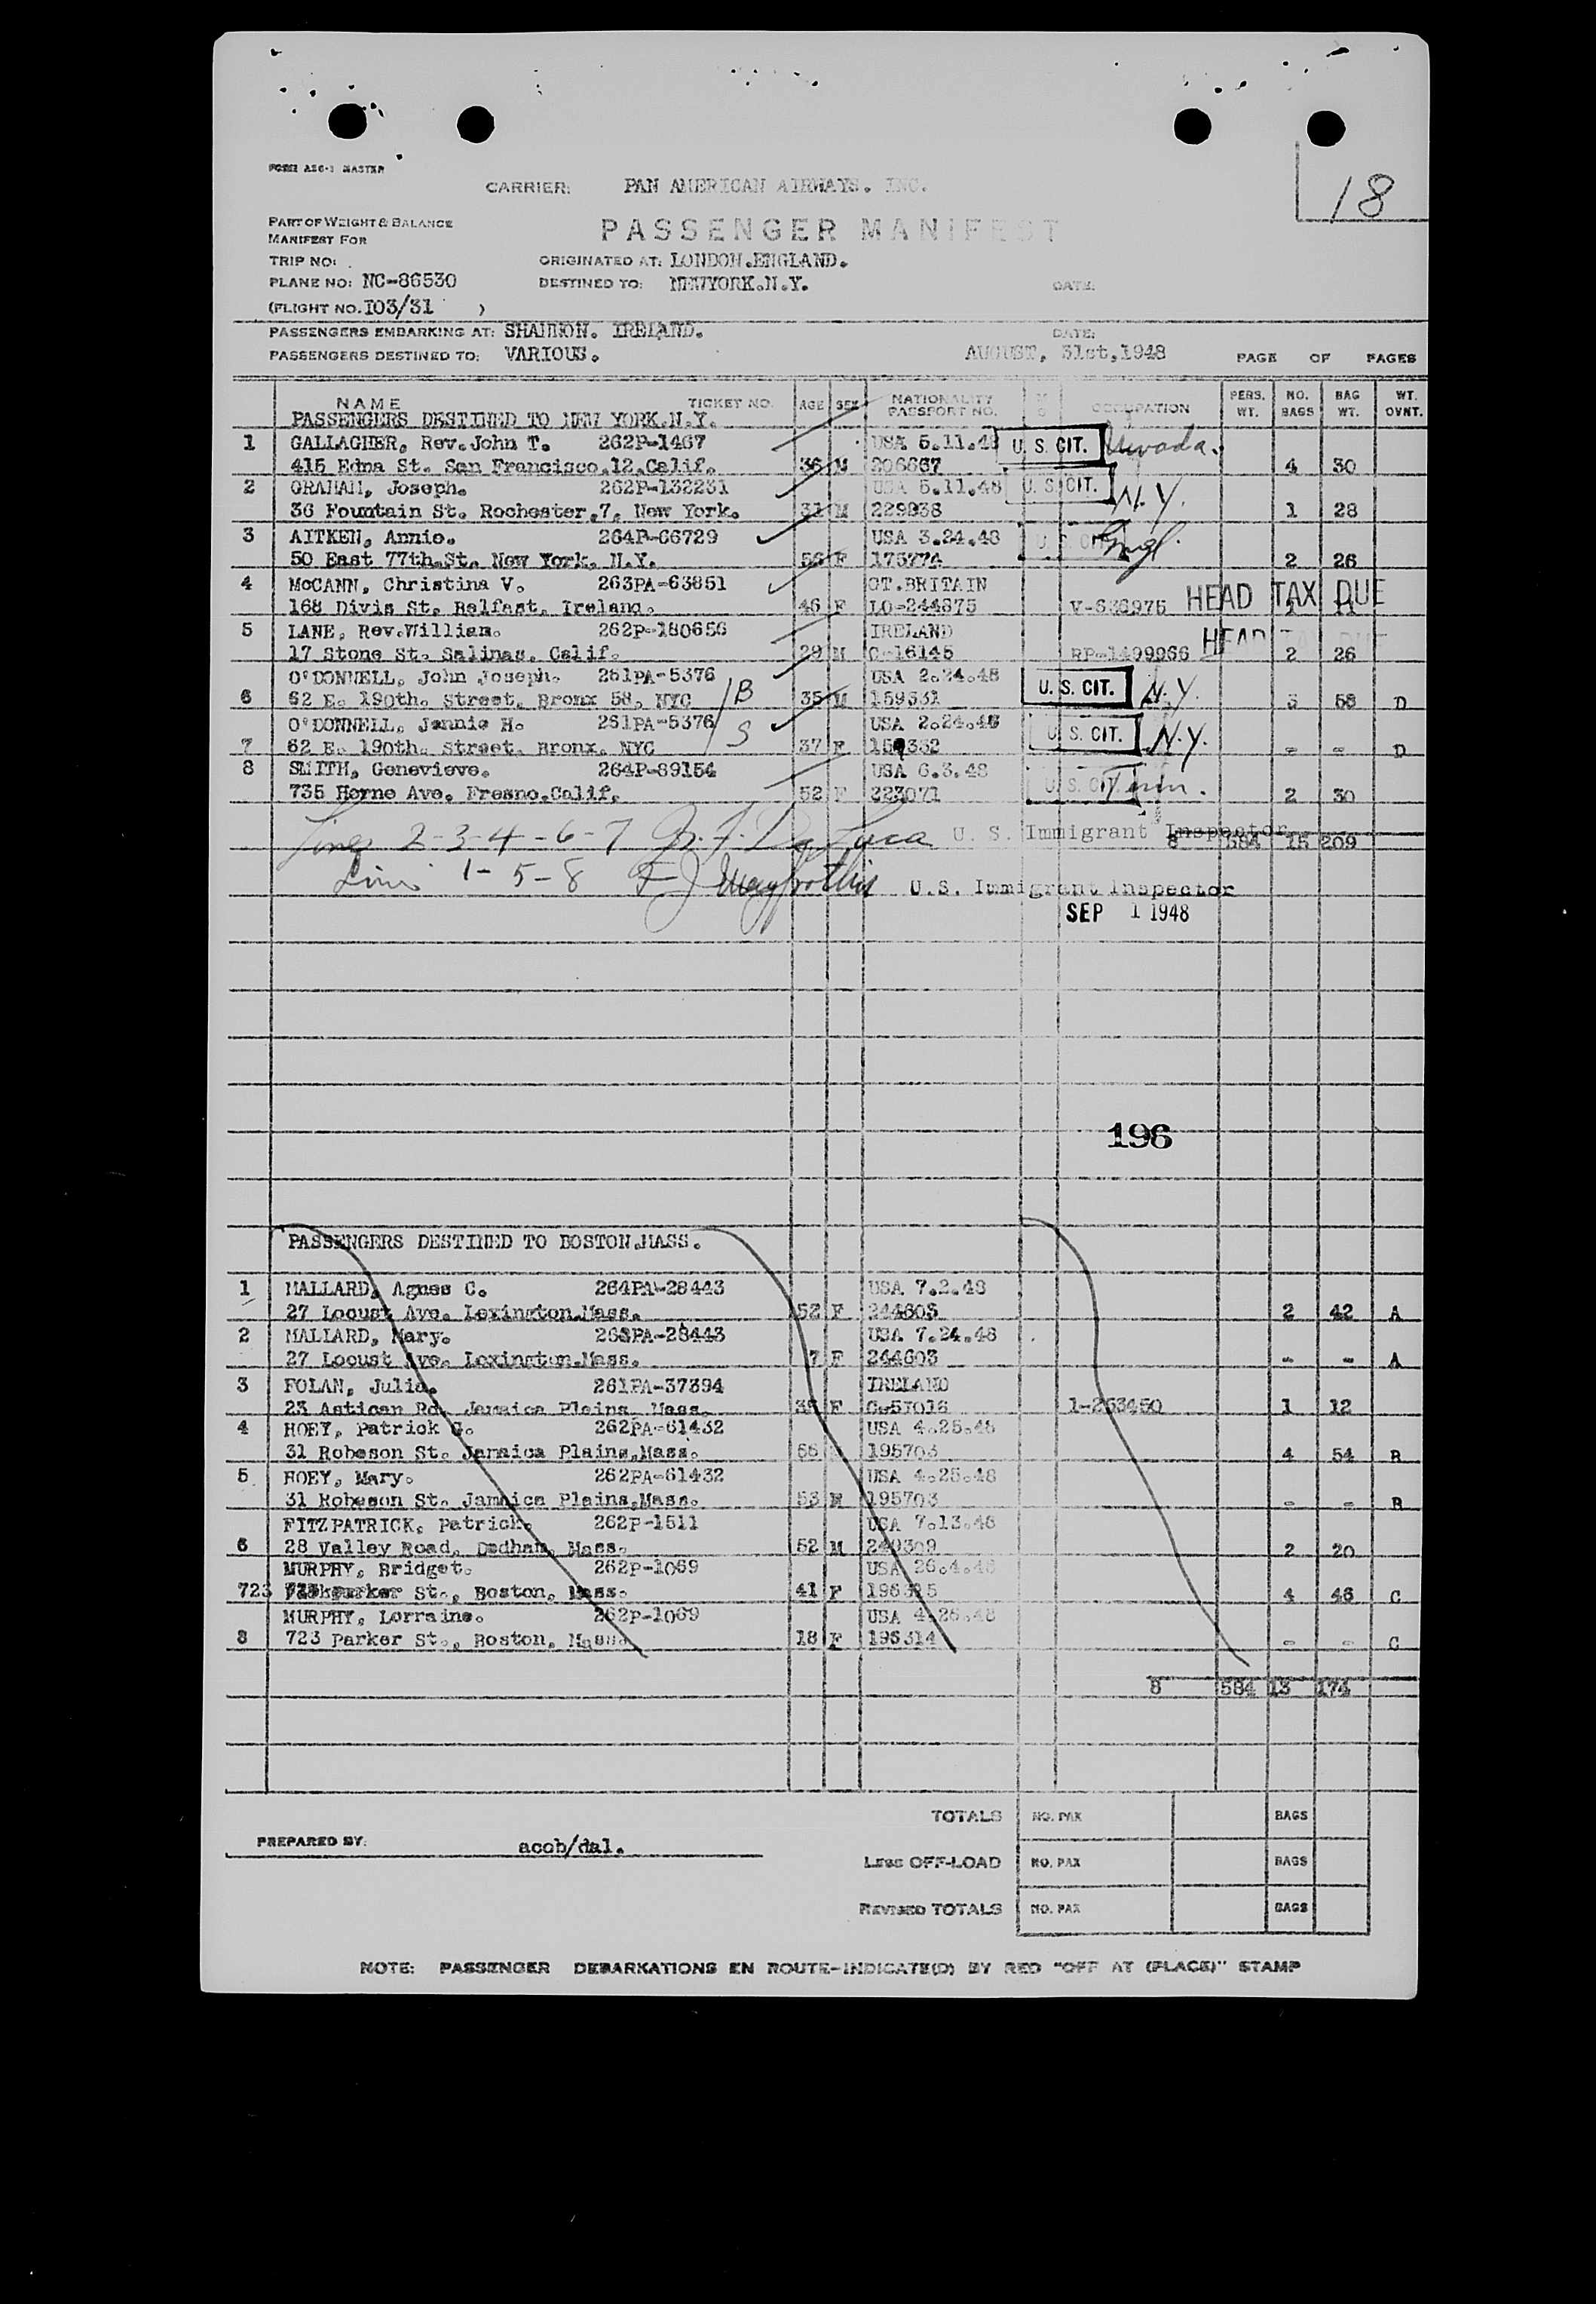 FORM ASC-1 MASTER
CARRIER: PAN AMERICAN AIRWAYS. INC.
18
PART OF WEIGHT & BALANCE
MANIFEST FOR
PASSENGER MANIFEST
TRIP NO: ORIGINATED AT: LONDON.ENGLAND.
PLANE NO: NC-86530 DESTINED TO: NEWYORK.N.Y. DATE:
(FLIGHT NO. I03/31 )
PASSENGERS EMBARKING AT: SHANNON. IRELAND. DATE:
PASSENGERS DESTINED TO: VARIOUS. AUGUST, 31st,1948 PAGE OF PAGES
NAME TICKET NO. AGE SEX NATIONALITY PASSPORT NO. OCCUPATION PERS. WT. NO. BAGS BAG WT. WT. OVNT.
PASSENGERS DESTINED TO NEW YORK.N.Y.
1 GALLAGHER, Rev.John T. 262P-1467 USA 5.11.48 U. S. CIT. Nevada.
415 Edna St. San Francisco.12.Calif. 36 M 206667 4 30
2 GRAHAM, Joseph. 262P-132231 USA 5.11.48 U. S. CIT. N.Y.
36 Fountain St. Rochester.7. New York. 31 M 229938 1 28
3 AITKEN, Annie. 264P-66729 USA 3.24.48 U. S. CIT. Engl.
50 East 77th.St. New York. N.Y. 56 F 175774 2 26
4 McCANN, Christina V. 263PA-63851 GT.BRITAIN HEAD TAX DUE
168 Divis St. Belfast. Ireland. 46 F LO-244875 11
5 LANE, Rev.William. 262P-180656 IRELAND HEAD TAX DUE
17 Stone St. Salinas. Calif. 29 M C-16145 RP-1499966 2 26
O'DONNELL, John Joseph. 261PA-5376 USA 2.24.48 U. S. CIT. N.Y.
6 62 E. 190th. Street. Bronx 58. NYC B 35 M 159331 3 58 D
O'DONNELL, Jennie H. 261PA-5376 USA 2.24.48 U. S. CIT. N.Y.
7 62 E. 190th. Street. Bronx. NYC S 37 F 159332 - - D
8 SMITH, Genevieve. 264P-89154 USA 6.3.48 U. S. CIT.
735 Horne Ave. Fresno.Calif. 52 F 223071 2 30
Lines 2-3-4-6-7 U. S. Immigrant Inspector
8 584 15 209
Lines 1-5-8 U.S. Immigrant Inspector
SEP 1 1948
196
PASSENGERS DESTINED TO BOSTON.MASS.
1 MALLARD, Agnes C. 264PA-28443 USA 7.2.48
27 Locust Ave. Lexington.Mass. 52 F 244603 2 42 A
2 MALLARD, Mary. 263PA-28443 USA 7.24.48
27 Locust Ave. Lexington.Mass. 7 F 244603 - - A
3 FOLAN, Julia. 261PA-37394 IRELAND
23 Astican Rd. Jamaica Plains. Mass. F C-57016 1-263450 1 12
4 HOEY, Patrick G. 262PA-61432 USA 4.25.48
31 Robeson St. Jamaica Plains,Mass. 195703 4 54 B
5 HOEY, Mary. 262PA-61432 USA 4.25.48
31 Robeson St. Jamaica Plains,Mass. 53 195703 - - B
FITZPATRICK, Patrick. 262P-1511 USA 7.13.48
6 28 Valley Road. Dedham. Mass. 52 M 249309 2 20
MURPHY, Bridget. 262P-1069 USA 26.4.48
723 Parker St., Boston, Mass. 41 F 196315 4 46 C
MURPHY, Lorraine. 262P-1069 USA 4.26.48
8 723 Parker St., Boston, Mass. 18 F 196314 - - C
8 584 13 174
TOTALS NO. PAX BAGS
PREPARED BY: acob/dal.
LESS OFF-LOAD NO. PAX BAGS
REVISED TOTALS NO. PAX BAGS
NOTE: PASSENGER DEBARKATIONS EN ROUTE-INDICATE(D) BY RED "OFF AT (PLACE)" STAMP